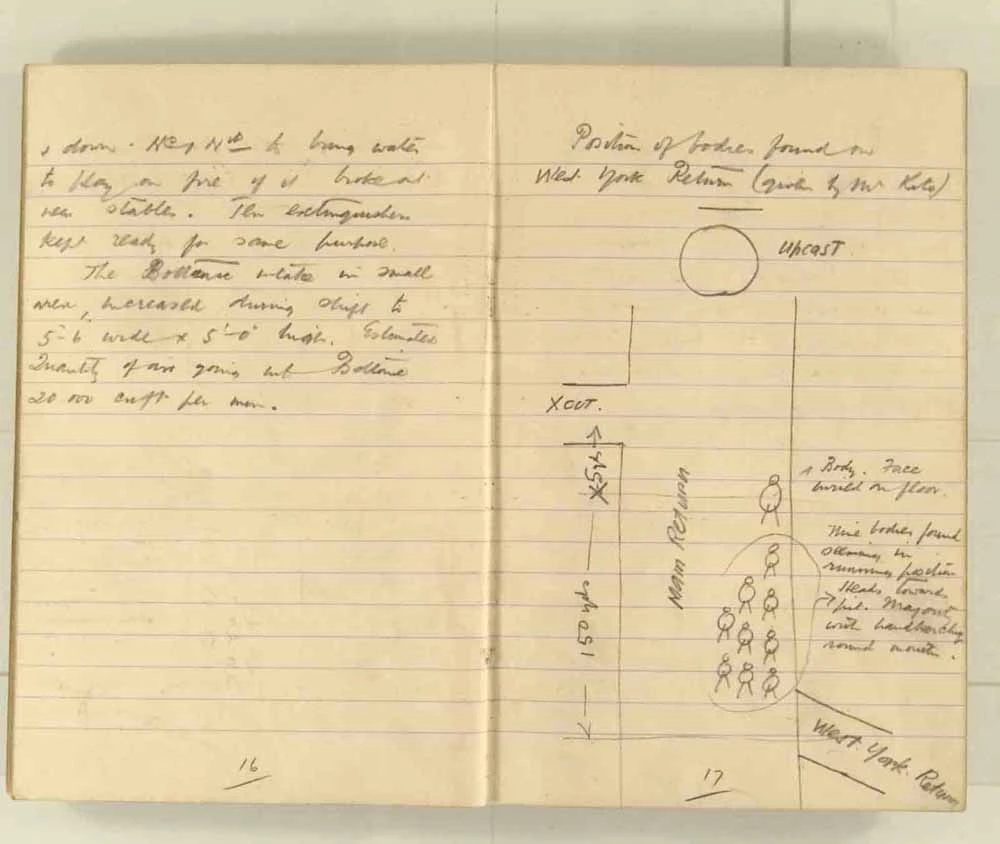 down. to bring water
to play on fire if it broke out
near stables. Ten extinguishers
kept ready for same purpose.
The intake in small
area, increased during shift to
5'-6 wide x 5'-0" high. Estimated
Quantity of air going
20 000 cu ft per min.
16
Position of bodies found on
West York Return (given by Mr)
Upcast
X cut.
Main Return
150 yds
1 Body. Face
on floor.
Nine bodies found
in
running position
Heads towards
pit.
with handkerchief
round mouth.
West. York. Return
17